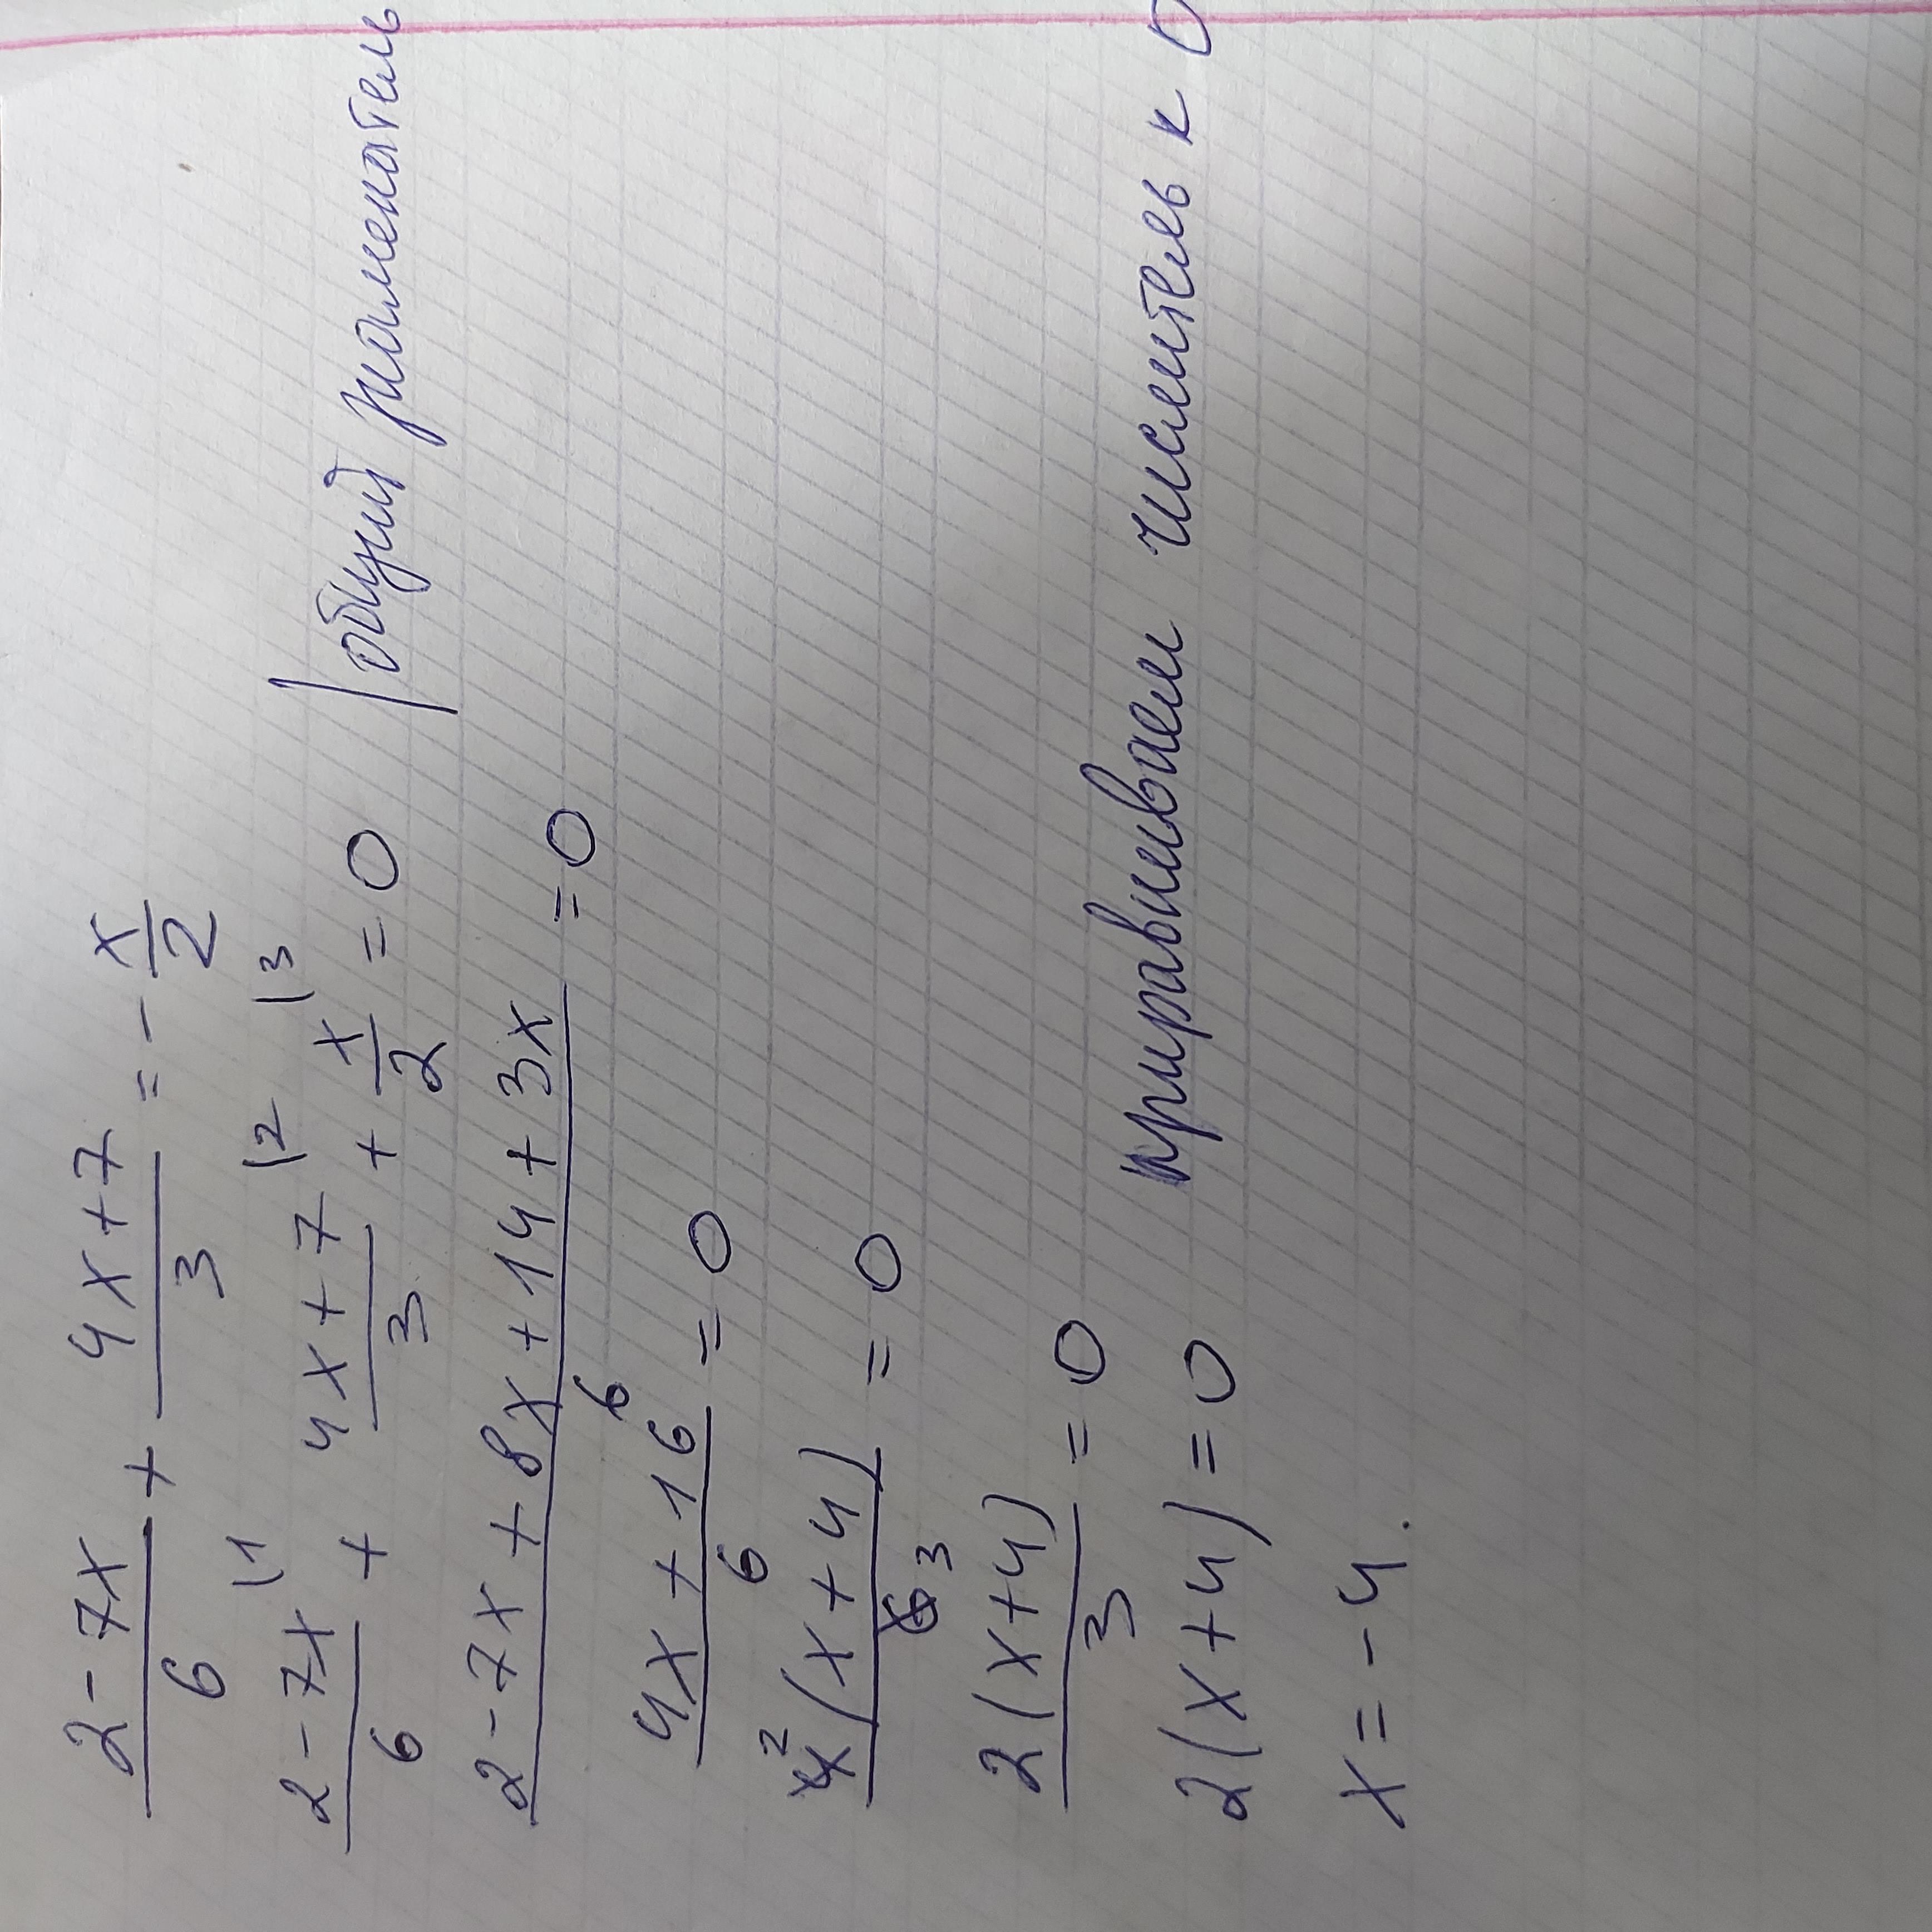 (2 - 7x)/6 + (4x + 7)/3 = - x/2
(2 - 7x)/6 \1 + (4x + 7)/3 \2 + x/2 \3 = 0 | общий знаменатель
(2 - 7x + 8x + 14 + 3x)/6 = 0
(4x + 16)/6 = 0
4 2 (x + 4)/6 3 = 0
2(x+4)/3 = 0
2(x+4) = 0 приравниваем числитель к 0
x = -4.